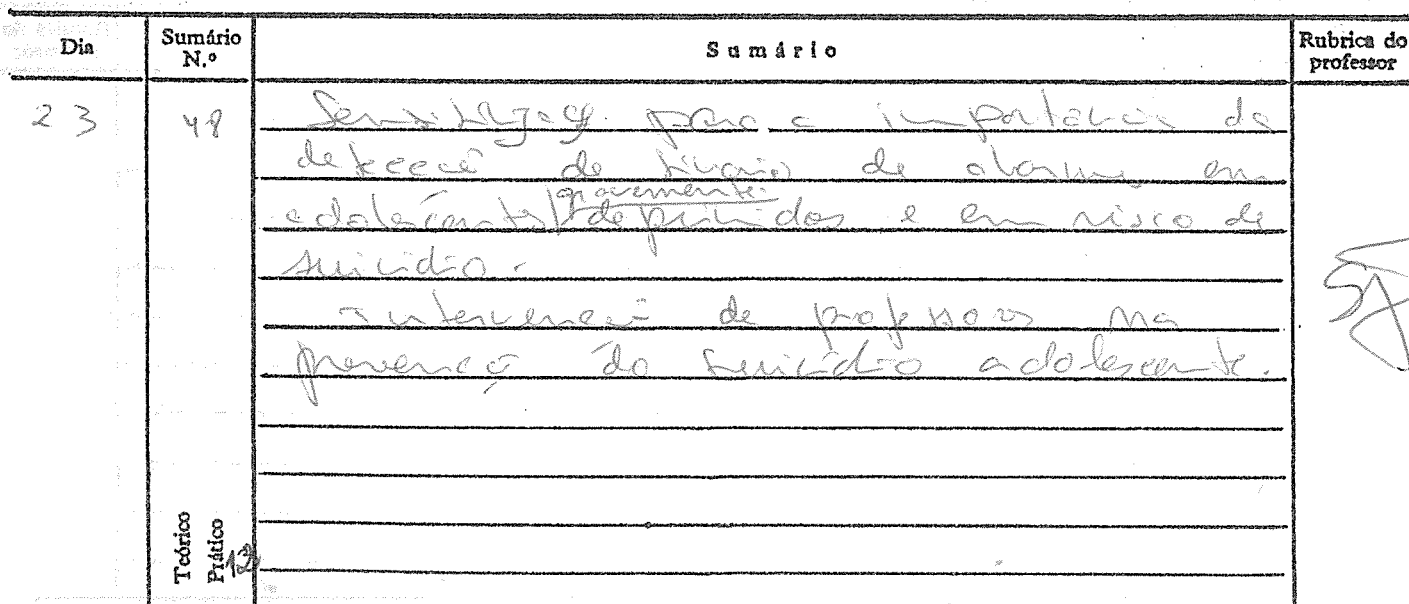 Dia Sumário N.º Sumário Rubrica do professor
23 48 Sensibilização para a importância da
detecção de sinais de alarme em
adolescentes gravemente deprimidos e em risco de
suicídio.
Intervenção de professores na
prevenção do suicídio adolescente.
Teórico
Prático 12